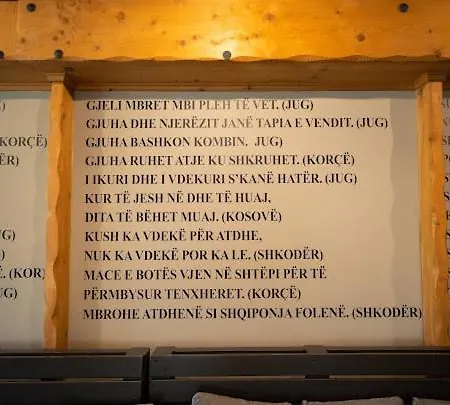 GJELI MBRET MBI PLEH TË VET. (JUG)
GJUHA DHE NJERËZIT JANË TAPIA E VENDIT. (JUG)
GJUHA BASHKON KOMBIN. JUG)
GJUHA RUHET ATJE KU SHKRUHET. (KORÇË)
I IKURI DHE I VDEKURI S'KANË HATËR. (JUG)
KUR TË JESH NË DHE TË HUAJ,
DITA TË BËHET MUAJ. (KOSOVË)
KUSH KA VDEKË PËR ATDHE,
NUK KA VDEKË POR KA LE. (SHKODËR)
MACE E BOTËS VJEN NË SHTËPI PËR TË
PËRMBYSUR TENXHERET. (KORÇË)
MBROHE ATDHENË SI SHQIPONJA FOLENË. (SHKODËR)
KORÇË)